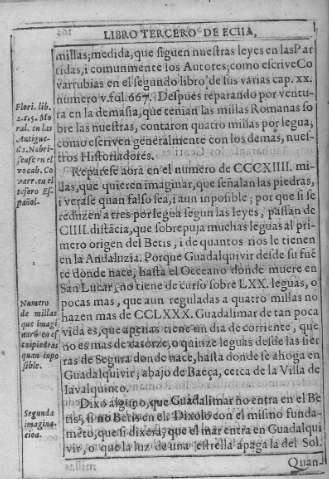 LIBRO TERCERO DE ECIIA,
millas; medida, que siguen nuestras leyes en las Par
tidas, i comunmente los Autores; como escrive Co
varrubias en el segundo libro de sus varias cap. xx.
numero v. fol. 667. Despues reparando por ventu
ra en la demasia, que tenian las millas Romanas so
bre las nuestras, contaron quatro millas por legua,
como escriven generalmente con los demas, nues
tros Historiadores.
Reparese aora en el numero de CCCXIIII. mi
llas, que quieren imaginar, que señalan las piedras,
i verase quan falso sea, i aun inposible; por que si se
reduzen a tres por legua segun las leyes, passan de
CIIII. distãcia, que sobrepuja muchas leguas al pri
mero origen del Betis, i de quantos rios le tienen
en la Andaluzia. Porque Guadalquivir desde su fuẽ
te donde nace, hasta el Occeano donde muere en
San Lucar, no tiene de curso sobre LXX. leguas, o
pocas mas, que aun reguladas a quatro millas no
hazen mas de CCLXXX. Guadalimar de tan poca
vida es, que apenas tiene un dia de corriente, que
no es mas de catorze, o quinze leguas desde las sier
ras de Segura donde nace, hasta donde se ahoga en
Guadalquivir, abajo de Baeça, cerca de la Villa de
Iavalquinto.
Dixo alguno, que Guadalimar no entra en el Be
tis, si no Betis en el. Dixolo con el mismo funda
mẽto, que si dixera, que el mar entra en Guadalqui
vir, o que la luz de una estrella apaga la del Sol.
Quan
Flori. lib.
2. c. 5. Mo
ral. en las
Antigue-
Nebri-
sense en el
vocab. Co
varr. en el
tesoro Es
pañol.
Numero
de millas
que imagi
naro en es
tas piedras
quan inpo
sible.
Segunda
imagina
cion.